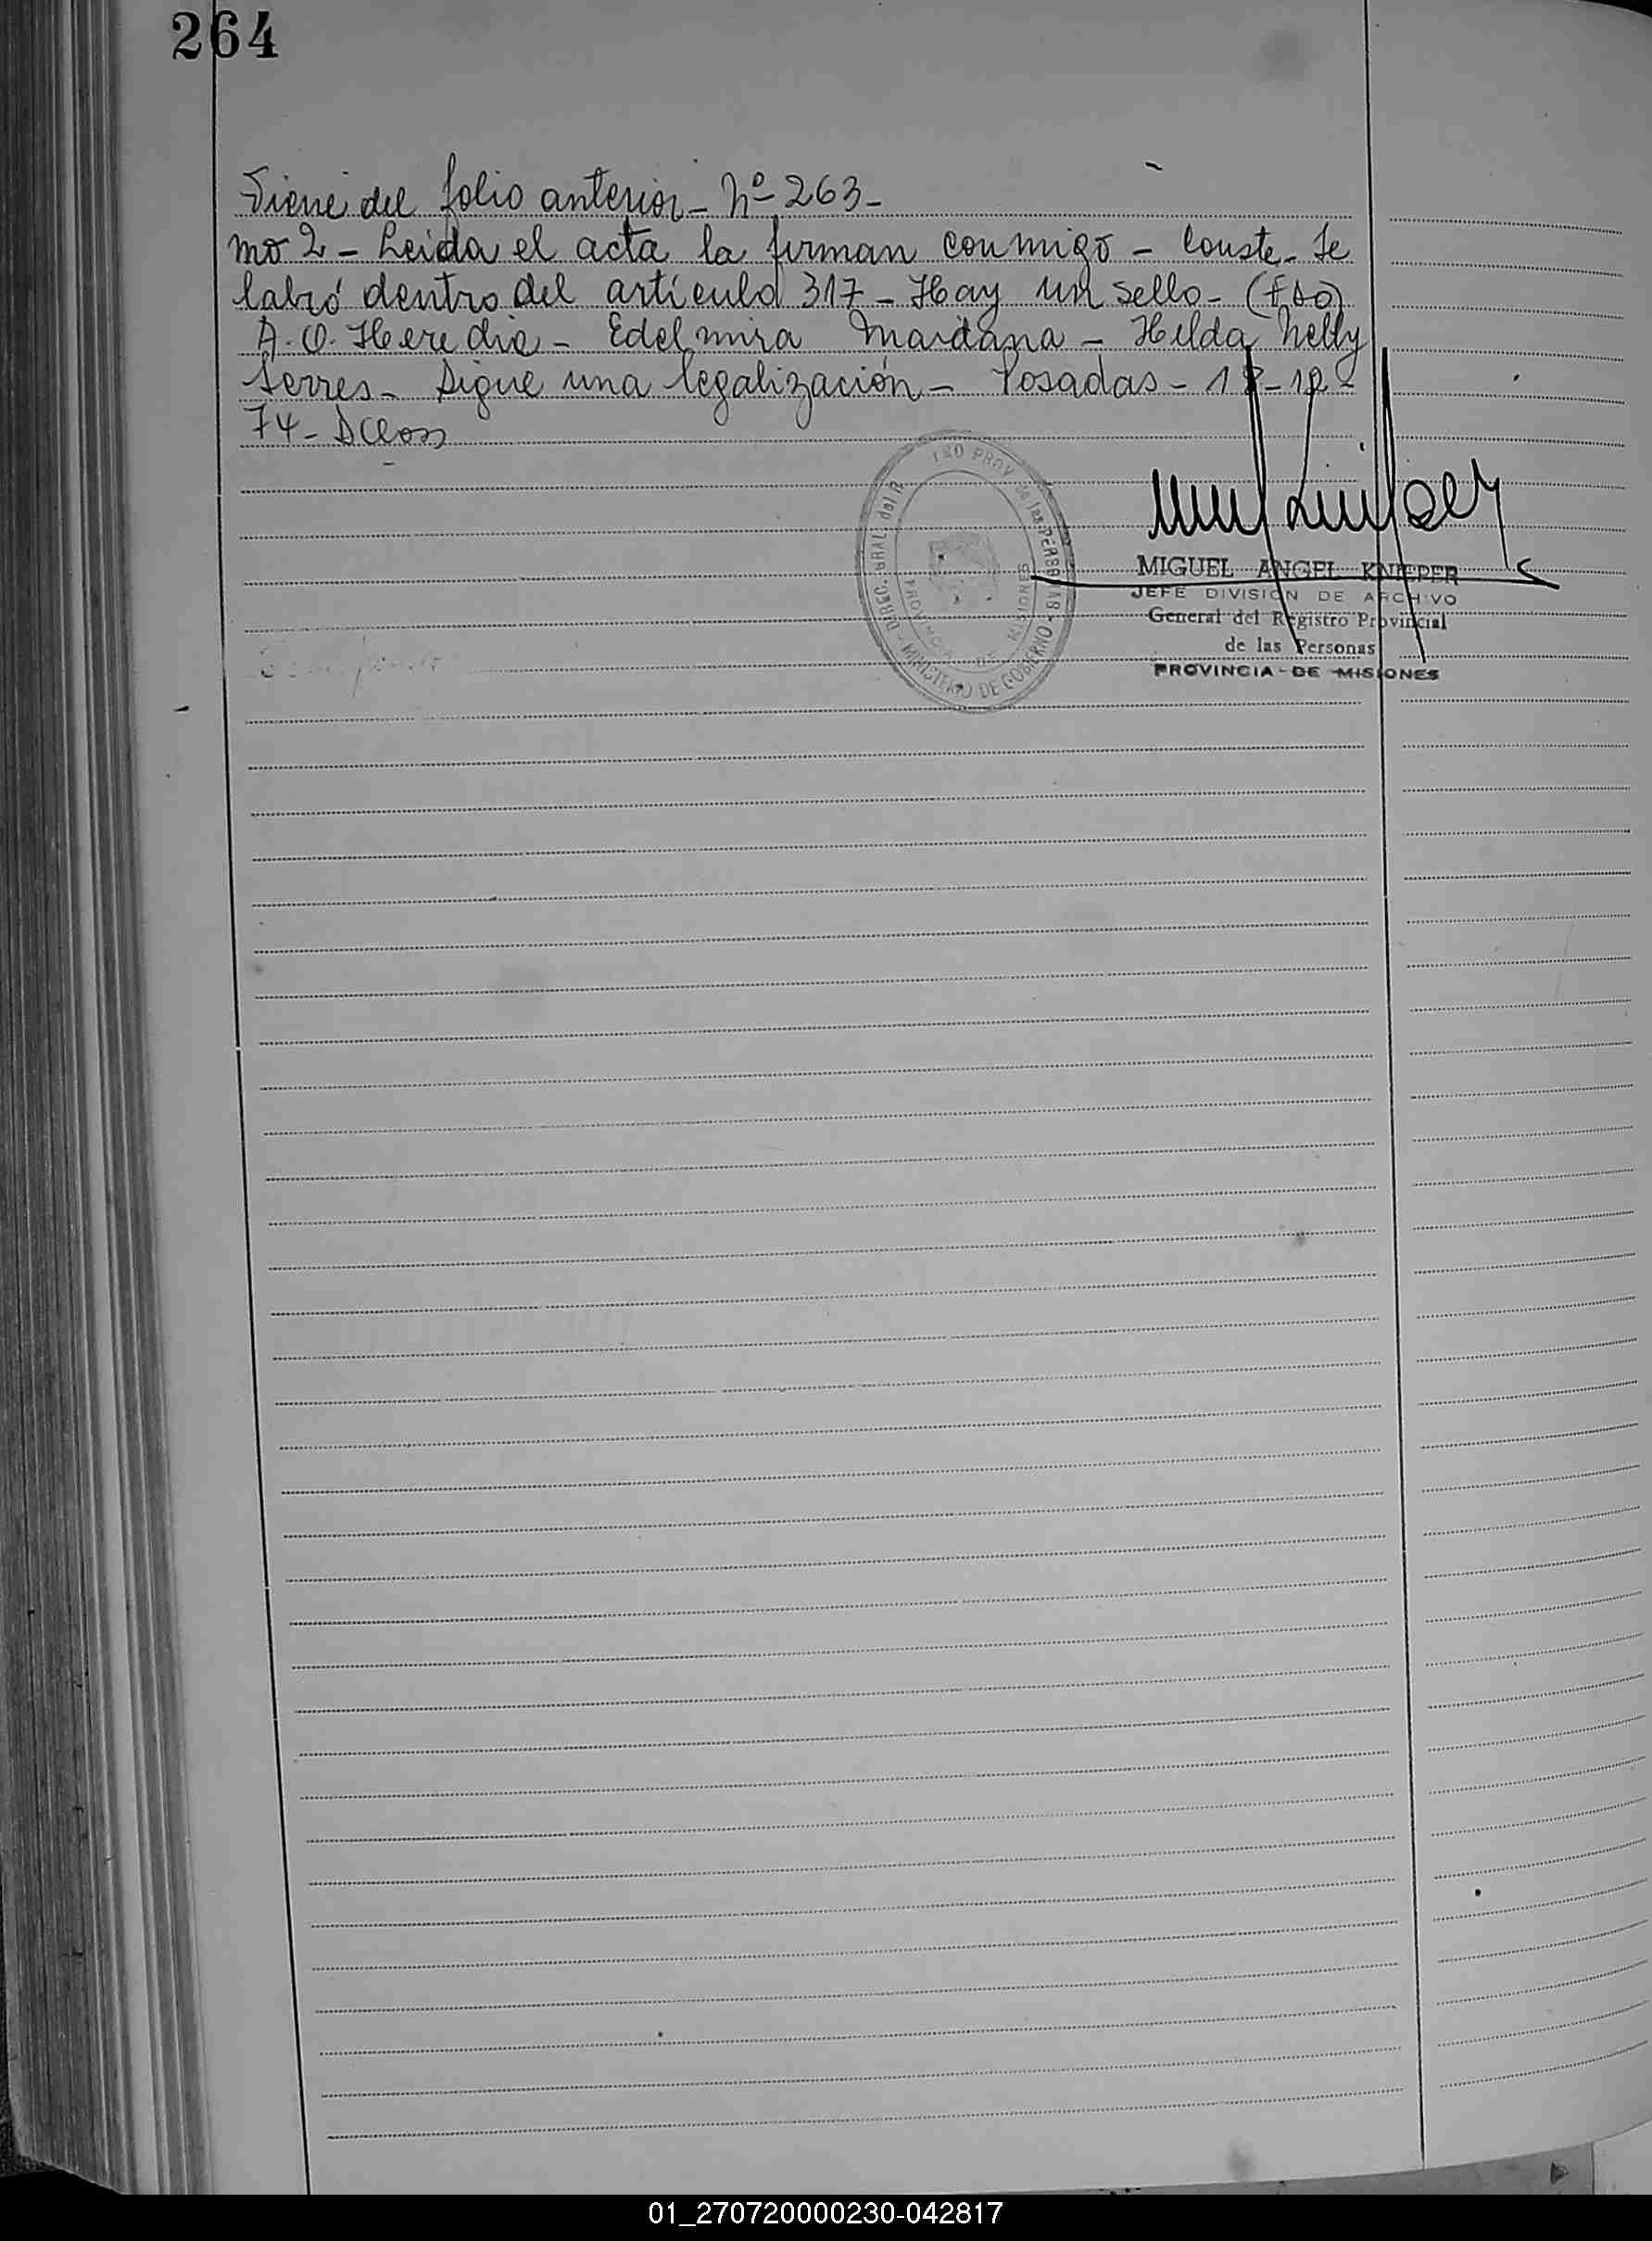 264
Viene del folio anterior - Nº 263 -
mo 2 - Leida el acta la firman conmigo - Conste - Se
labró dentro del artículo 317 - Hay un sello - (Fdo)
A. O. Heredia - Edelmira Maidana - Hilda Nelly
Serres - Sigue una legalización - Posadas - 18 - 12 -
74 -
MIGUEL ANGEL KNIEPER
JEFE DIVISION DE ARCHIVO
General del Registro Provincial
de las Personas
PROVINCIA DE MISIONES
PROV. de las PERSONAS - MINISTERIO DE GOBIERNO - DIREC. GRAL. del
PROVINCIA DE MISIONES
01_270720000230-042817